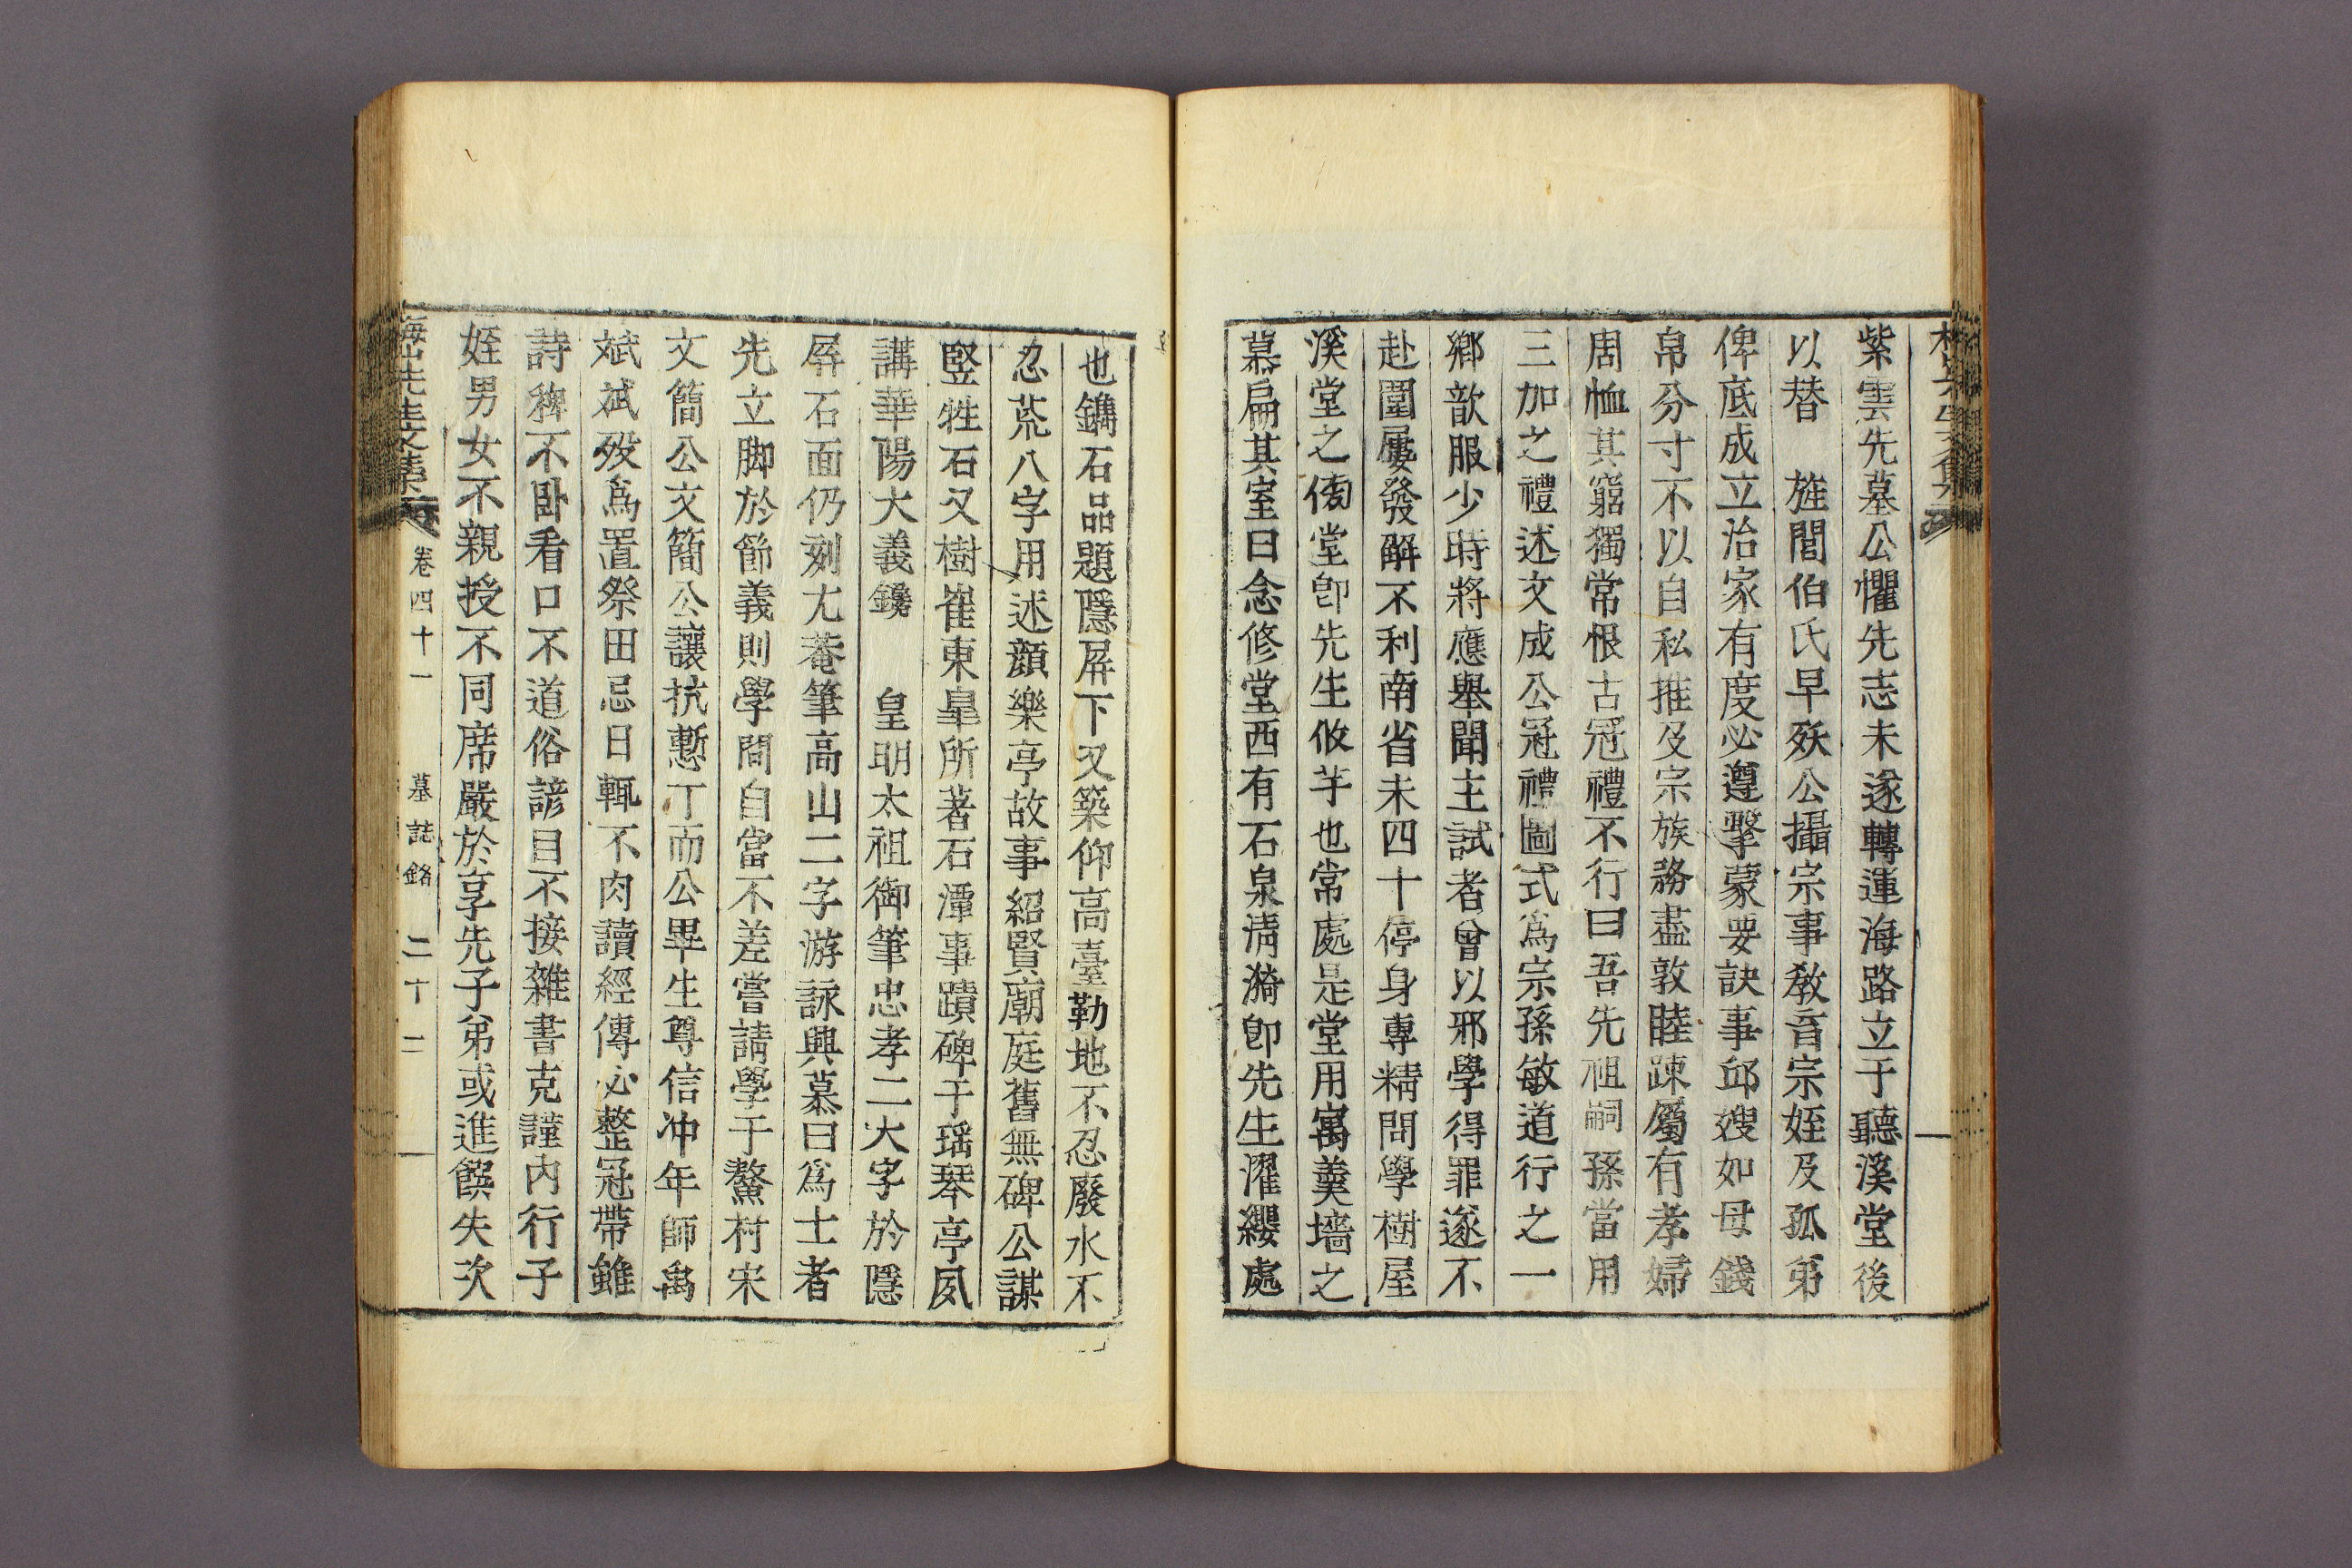 紫雲先墓公懼先志未遂轉運海路立于聽溪堂後
以替　旌閭伯氏早歿公攝宗事敎育宗姪及孤弟
俾底成立治家有度必遵擊蒙要訣事邱嫂如母錢
帛分寸不以自私推及宗族務盡敦睦踈屬有孝婦
周恤其窮獨常恨古冠禮不行曰吾先祖嗣孫當用
三加之禮述文成公冠禮圖式爲宗孫敏道行之一
鄕歆服少時將應擧聞主試者曾以邪學得罪遂不
赴圍屢發解不利南省未四十停身專精問學樹屋
溪堂之傍堂卽先生攸芋也常處是堂用寓羹墻之
慕扁其室曰念修堂西有石泉淸漪卽先生濯纓處
也鐫石品題隱屛下又築仰高臺勒地不忍廢水不
忍荒八字用述顔樂亭故事紹賢廟庭舊無碑公謀
竪牲石又樹崔東皐所著石潭事蹟碑于瑤琴亭夙
講華陽大義鑱　皇明太祖御筆忠孝二大字於隱
屛石面仍刻尤菴筆高山二字游詠興慕曰爲士者
先立脚於節義則學問自當不差嘗請學于鰲村宋
文簡公文簡公讓抗慙丁而公畢生尊信冲年師禹
斌斌歿爲置祭田忌日輒不肉讀經傳必整冠帶雖
詩稗不卧看口不道俗諺目不接雜書克謹內行子
姪男女不親授不同席嚴於享先子弟或進饌失次
海山先生文集　卷四十一　墓誌銘　二十二